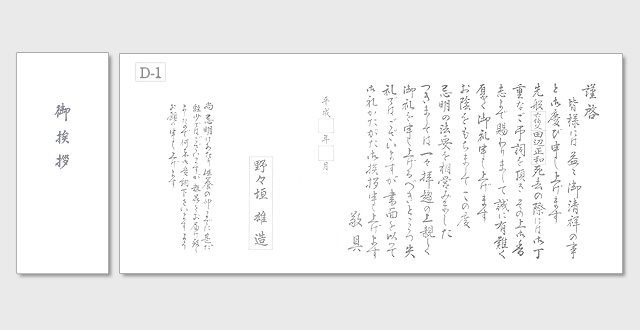 御挨拶
D-1
謹啓
皆様には益々御清祥の事
と御慶び申し上げます
先般 田辺正和 死去の際には御丁
重なご弔詞を頂き その上御香
志まで賜わりまして誠に有難く
厚く御礼申し上げます
お陰をもちまして この度
忌明の法要を相営みました
つきましては一々拝趨の上親しく
御礼を申し上げるべきところ 失
礼ではございますが書面を以て
御礼かたがた御挨拶申し上げます
敬具
平成 年 月
野々垣 雄造
お願い申し上げます